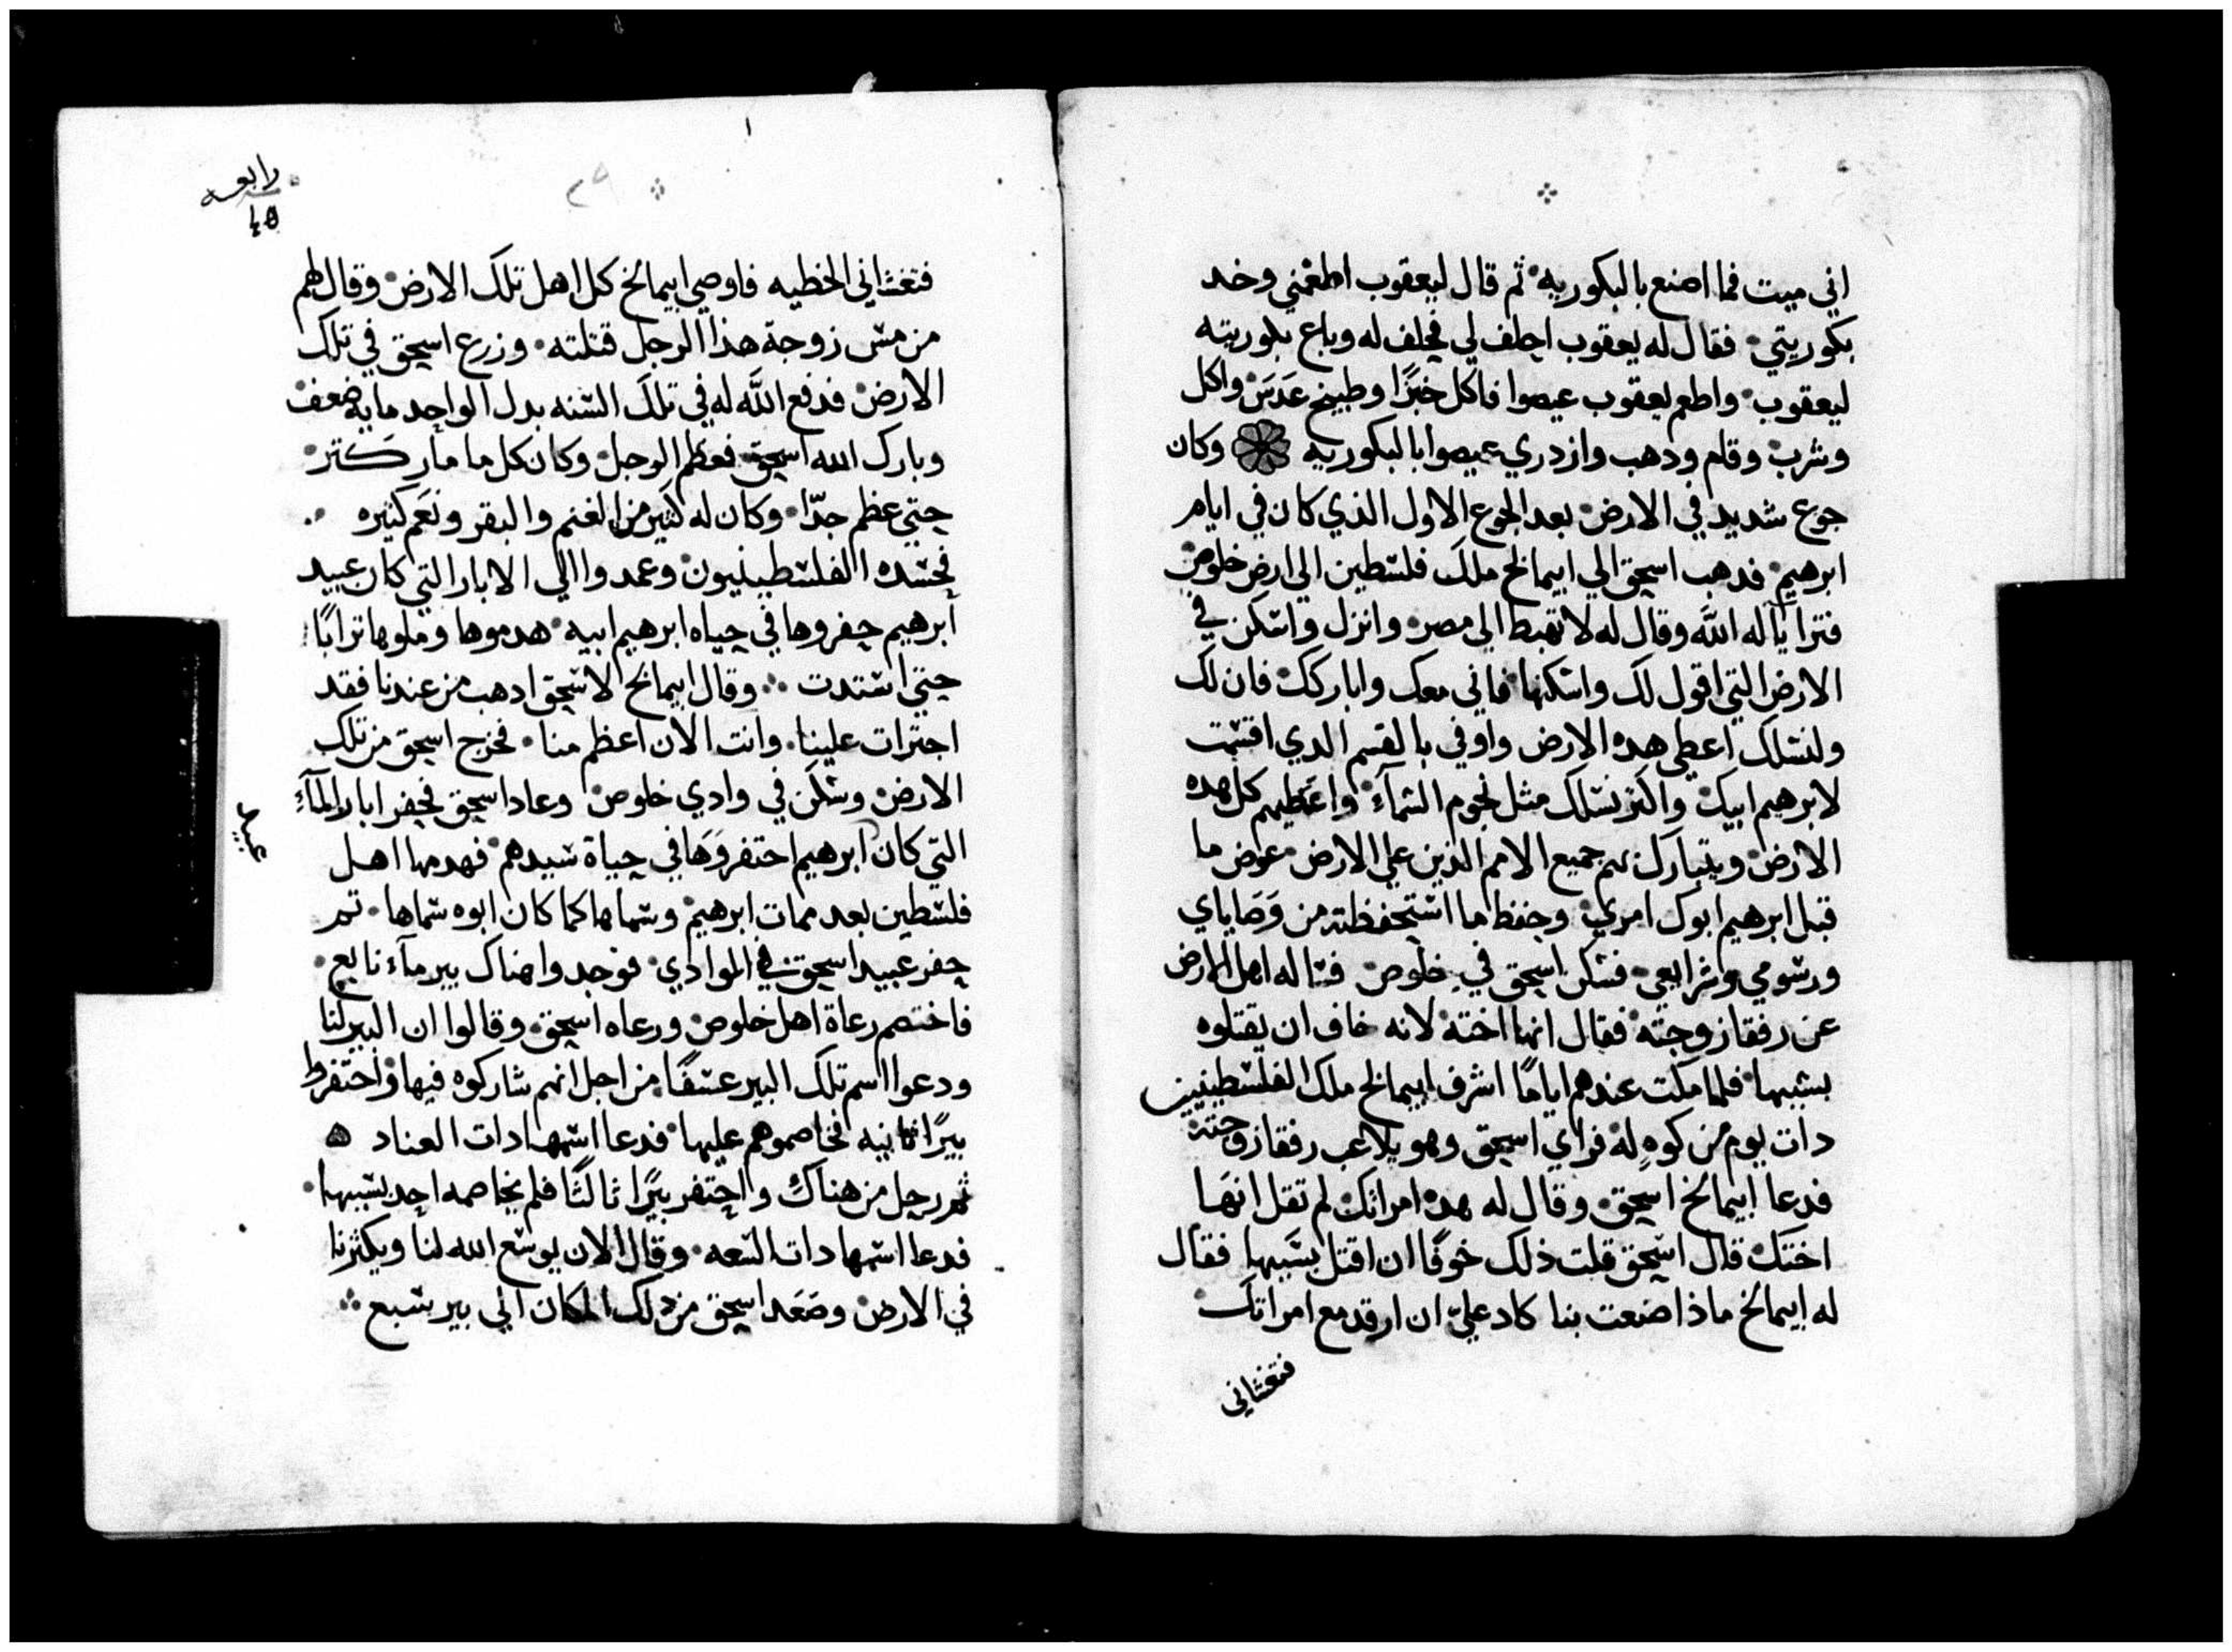 اني ميت فما اصنع بالبكوريه ثم قال ليعقوب اطعمني وخد
بكوريتي فقال له يعقوب احلف لي فحلف له وباع بكوريته
ليعقوب واطعم يعقوب عيصوا فاكل خبزًا وطبيخ عَدَسَ واكل
وشرب وقام ودهب وازدري عيصوا بالبكوريه وكان
جوع شديد في الارض بعد الجوع الاول الذي كان في ايام
ابرهيم فدهب اسحق الي ابيمالخ ملك فلسطين الي ارض خلوص
فترايا له الله وقال له لا تهبط الي مصر وانزل واسكن في
الارض التي اقول لك واسكنها فاني معك واباركك فان لك
ولنسلك اعطي هده الارض واوفي بالقسم الدي اقسمت
لابرهيم ابيك واكثر نسلك مثل نجوم السمآء واعطيهم كل هده
الارض ويتبارك بهم جميع الامم الذين علي الارض عوض ما
قبل ابرهيم ابوك امري وحفظ ما استحفظته من وَصَاياي
ورسومي وشرايعي فسكن اسحق في خلوص فساله اهل الارض
عن رفقا زوجته فقال انها اخته لانه خاف ان يقتلوه
بسببها فلما مكت عندهم ايامًا اشرف ابيمالخ ملك الفلسطينيين
دات يوم من كوهٍ له فراي اسحق وهو يلاعب رفقا زوجته
فدعا ابيمالخ اسحق وقال له هده امراتك لم تقل انهَا
اختك قال اسحق قلت ذلك خوفًا ان اقتل بسَببها فقال
له ابيمالخ ماذا صنعت بنا كاد عليّ ان ارقد مع امراتك
فتغشاني
رابعه
فتغشاني الخطيه فاوصي ابيمالخ كل اهل تلك الارض وقال لهم
من مس زوجة هذا الرجل قتلته وزرع اسحق في تلك
الارض فدفع الله له في تلك السنه بدل الواحد مايه ضعف
وبارك الله اسحق فعظم الرجل وكان كل ما مار كتر
حتي عظم جدّا وكان له كثير من الغنم والبقر ونعَم كثيره
فحسده الفلسطينيون وعمدوا الي الابار التي كان عبيد
ابرهيم حفروها في حياه ابرهيم ابيه هدموها وملوها ترابًا
حتي استدت وقال ابيمالخ لاسحق ادهب من عندنا فقد
اجترات علينا وانت الان اعظم منا فخرج اسحق من تلك
الارض وسكن في وادي خلوص وعاد اسحق فحفر ابار المآء
التي كان ابرهيم احتفروَهَا في حياة سيدهم فهدمها اهل
عبيد
فلسطين بعد ممات ابرهيم وسماها كما كان ابوه سماها تم
حفر عبيد اسحق في الموادي فوجدوا هناك بير مآء نابع
فاختصم رعاة اهل خلوص ورعاه اسحق وقالوا ان البير لنا
ودعوا اسم تلك البير عسفًا من اجل انهم شاركوه فيها واحتفرط
بيرًا ثانيه فخاصموهم عليها فدعا اسمها دات العناد ه
ثم رحل من هناك واحتفر بيرًا ثالثًا فلم يخاصمه احد بسببها
فدعا اسمها دات السعه وقال الان يوسع الله لنا ويكثرنا
في الارض وصَعَد اسحق من دلك المكان الي بير سبع